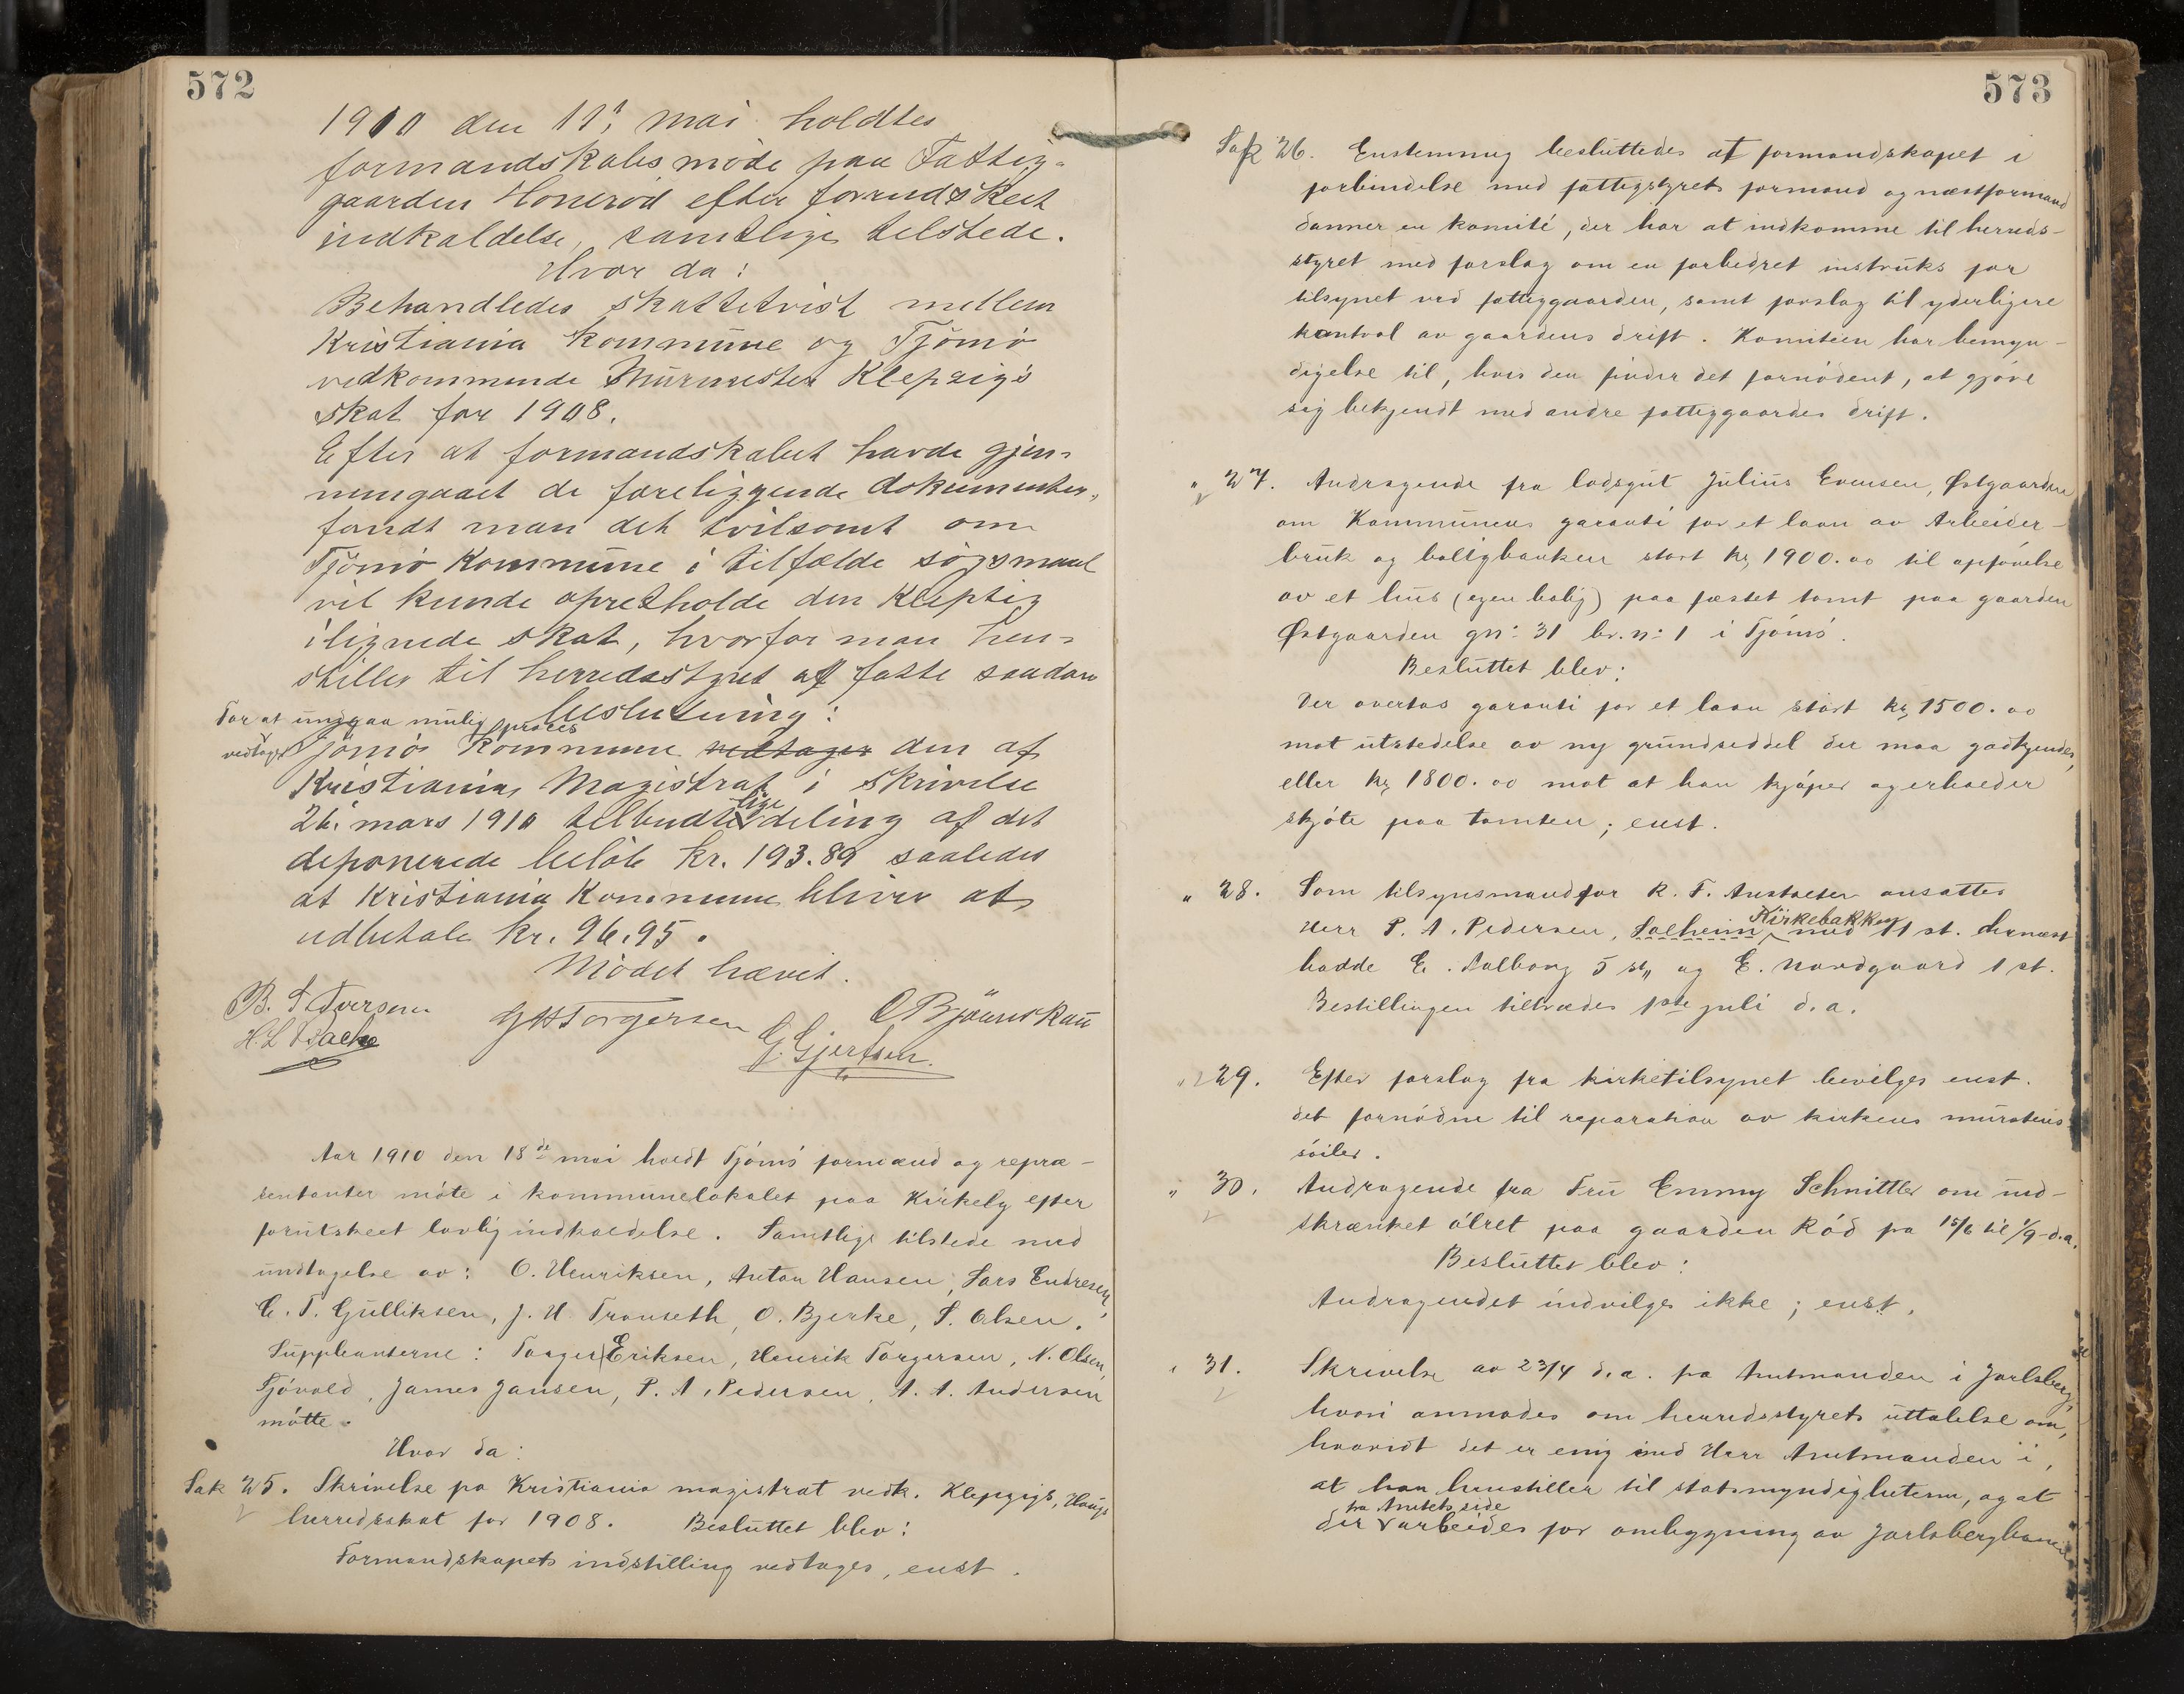 572
1910 den 11' mai holdtes
formandskabsmöde paa Fattig-
gaarden Honerød efter forrudskeet
indkaldelse, samtlige tilstede.
Hvor da:
Behandledes skattetvist mellem
Kristiania Kommune og Tjømø
vedkommende Murmester Klepzig's
skat for 1908.
Efter at formandskabet havde gjen-
nemgaaet de foreliggende dokumenter,
fandt man det tvilsomt om
Tjømø Kommune i tilfælde søgsmaal
vil kunde opretholde den Klepzig
ilignede skat, hvorfor man hen-
stiller til herredsstyret at fatte saadan
beslutning:
For at undgaa mulig proces
vedtager Tjömös Kommune vedtager den af
Kristiania Magistrat i skrivelse
26. mars 1910 tilbudte lige deling af det
deponerede beløb kr. 193.89 saaledes
at Kristiania Kommune bliver at
udbetale kr. 96.95.
Mödet hævet.
B. S. Iversen
H. L. Bache
G H Torgersen
O Bjöunskau
G. Gjertsen.
Aar 1910 den 18de mai holdt Tjømø formænd og repræ-
sentanter møte i kommunelokalet paa Kirkely efter
forutskeet lovlig indkaldelse. Samtlige tilstede med
undtagelse av: O. Henriksen, Anton Hansen, Lars Endresen,
C. T. Gulliksen, J. H. Transeth, O. Bjerke, S. Olsen.
Suppleanterne: Torger Eriksen, Henrik Torgersen, N. Olsen,
Tjøvold, James Jansen, P. A. Pedersen, A. A. Andersen
møtte.
Hvor da:
Sak 25. Skrivelse fra Kristiania magistrat vedk. Klepzigs, Haugs
herredsskat for 1908. Besluttet blev:
Formandskapets indstilling vedtages, enst.
573
Sak 26. Enstemmig besluttedes at formandskapet i
forbindelse med fattigstyrets formand og næstformand
danner en komité, der har at indkomme til herreds-
styret med forslag om en forbedret instruks for
tilsynet ved fattiggaarden, samt forslag til yderligere
kontrol av gaardens drift. Komiteen har bemyn-
digelse til, hvis den finder det fornødent, at gjøre
sig bekjendt med andre fattiggaardes drift.
" 27. Andragende fra lodsgut Julius Evensen, Østgaarden
om Kommunens garanti for et laan av Arbeider-
bruk og boligbanken stort kr. 1900.00 til opførelse
av et hus (egen bolig) paa fæstet tomt paa gaarden
Østgaarden gn: 31 br. n: 1 i Tjømø.
Besluttet blev:
Der overtas garanti for et laan stort kr. 1500.00
mot utstedelse av ny grundseddel der maa godkjendes,
eller kr. 1800.00 mot at han kjøper og erholder
skjøte paa tomten; enst.
" 28. Som tilsynsmand for R. F. Anstalten ansattes
Herr P. A. Pedersen, Solheim Kirkebakken med 11 st. dernæst
hadde E. Aalborg 5 st. og E. Nordgaard 1 st.
Bestillingen tiltrædes 1ste juli d.a.
" 29. Efter forslag fra kirketilsynet bevilges enst.
det fornødne til reparation av kirkens murstens
søiler.
" 30. Andragende fra Fru Emmy Schnittler om ind-
skrænket ølret paa gaarden Rød fra 15/6 til 1/9 d.a.
Besluttet blev:
Andragendet indvilges ikke; enst.
" 31. Skrivelse av 23/4 d.a. fra Amtmanden i Jarlsberg,
hvori anmodes om herredsstyrets uttalelse om,
hvorvidt det er enig med Herr Amtmanden i,
at han henstiller til statsmyndigheterne, og at
der fra Amtets side arbeides for ombygning av Jarlsbergbanen